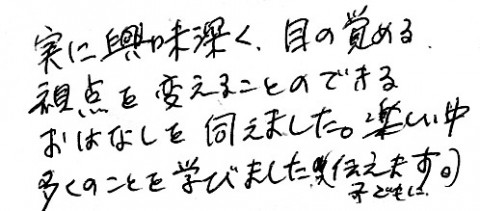 実に興味深く、目の覚める
視点を変えることのできる
おはなしを伺えました。楽しい中
多くのことを学びました伝えます。)
子どもに